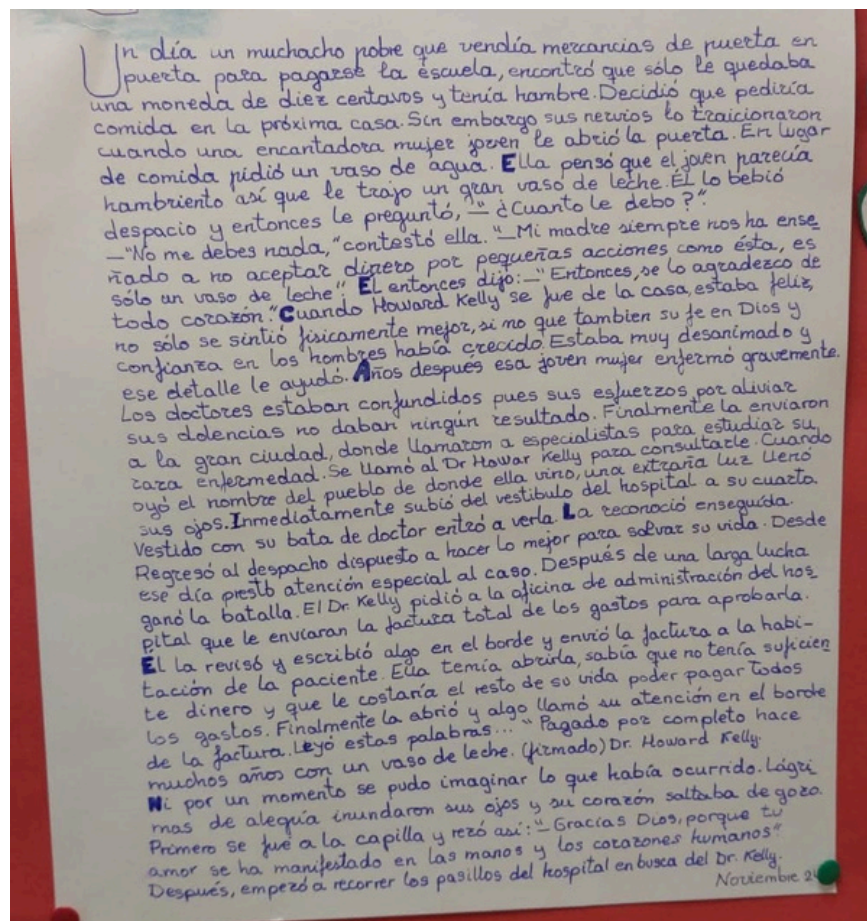 Un día un muchacho pobre que vendía mercancias de puerta en
puerta para pagarse la escuela, encontró que sólo le quedaba
una moneda de diez centavos y tenía hambre. Decidió que pediría
comida en la próxima casa. Sin embargo sus nervios lo traicionaron
cuando una encantadora mujer joven le abrió la puerta. En lugar
de comida pidió un vaso de agua. Ella pensó que el joven parecía
hambriento así que le trajo un gran vaso de leche. Él lo bebió
despacio y entonces le preguntó, —"¿Cuanto le debo?".
—"No me debes nada," contestó ella. "—Mi madre siempre nos ha ense_
ñado a no aceptar dinero por pequeñas acciones como ésta, es
sólo un vaso de leche". Él entonces dijo: —"Entonces, se lo agradezco de
todo corazón." Cuando Howard Kelly se fue de la casa, estaba feliz,
no sólo se sintió físicamente mejor, si no que tambien su fe en Dios y
confianza en los hombres había crecido. Estaba muy desanimado y
ese detalle le ayudó. Años después esa joven mujer enfermó gravemente.
Los doctores estaban confundidos pues sus esfuerzos por aliviar
sus dolencias no daban ningún resultado. Finalmente la enviaron
a la gran ciudad, donde llamaron a especialistas para estudiar su
rara enfermedad. Se llamó al Dr Howar Kelly para consultarle. Cuando
oyó el nombre del pueblo de donde ella vino, una extraña luz llenó
sus ojos. Inmediatamente subió del vestíbulo del hospital a su cuarto.
Vestido con su bata de doctor entró a verla. La reconoció enseguida.
Regresó al despacho dispuesto a hacer lo mejor para salvar su vida. Desde
ese día prestó atención especial al caso. Después de una larga lucha
ganó la batalla. El Dr. Kelly pidió a la oficina de administración del hos_
pital que le enviaran la factura total de los gastos para aprobarla.
Él la revisó y escribió algo en el borde y envió la factura a la habi-
tación de la paciente. Ella temía abrirla, sabía que no tenía suficien
te dinero y que le costaría el resto de su vida poder pagar todos
los gastos. Finalmente la abrió y algo llamó su atención en el borde
de la factura. Leyó estas palabras... "Pagado por completo hace
muchos años con un vaso de leche. (firmado) Dr. Howard Kelly.
Ni por un momento se pudo imaginar lo que había ocurrido. Lágri
mas de alegría inundaron sus ojos y su corazón saltaba de gozo.
Primero se fué a la capilla y rezó así: "—Gracias Dios, porque tu
amor se ha manifestado en las manos y los corazones humanos"
Después, empezó a recorrer los pasillos del hospital en busca del Dr. Kelly.
Noviembre